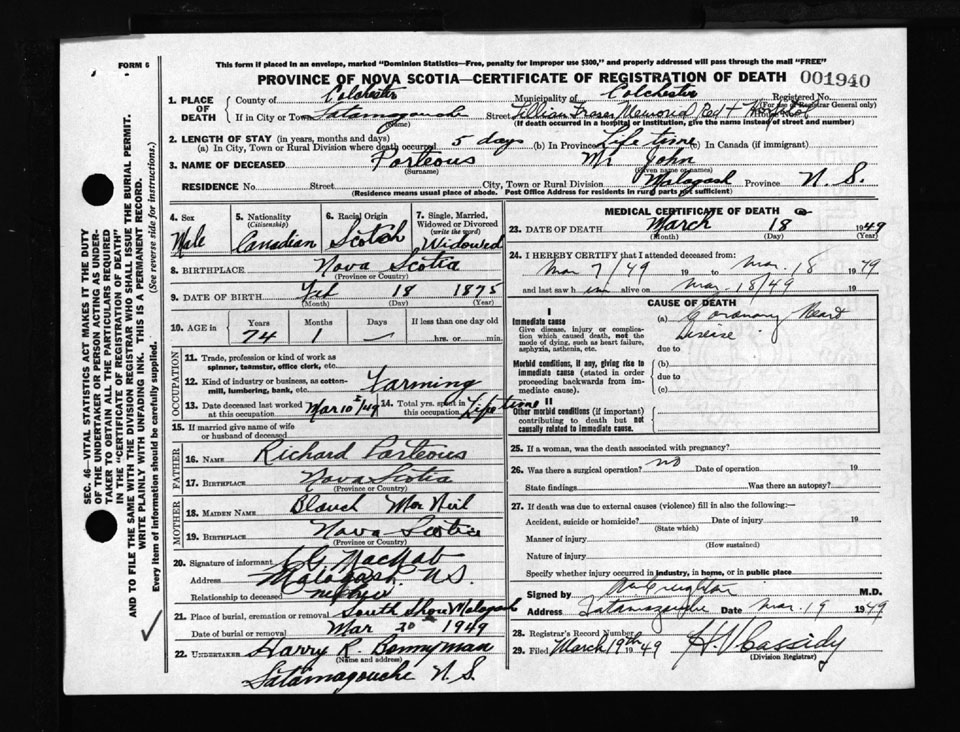 FORM 6
This form if placed in an envelope, marked "Dominion Statistics—Free, penalty for improper use $300," and properly addressed will pass through the mail "FREE"
PROVINCE OF NOVA SCOTIA—CERTIFICATE OF REGISTRATION OF DEATH 001940
1. PLACE OF DEATH County of Colchester Municipality of Colchester Registered No. (For use of Registrar General only)
If in City or Town Tatamagouche (Name) Street Lillian Fraser Memorial Red + Hospital
(If death occurred in a hospital or institution, give the name instead of street and number)
2. LENGTH OF STAY (in years, months and days)
(a) In City, Town or Rural Division where death occurred 5 days (b) In Province Life time (c) In Canada (if immigrant)
3. NAME OF DECEASED Porteous Mr John
(Surname) (Given name or names)
RESIDENCE No. Street City, Town or Rural Division Malagash Province N. S.
(Residence means usual place of abode. Post Office Address for residents in rural parts not sufficient)
4. Sex Male
5. Nationality (Citizenship) Canadian
6. Racial Origin Scotch
7. Single, Married, Widowed or Divorced (write the word) Widowed
8. BIRTHPLACE Nova Scotia
(Province or Country)
9. DATE OF BIRTH Feb 18 1875
(Month) (Day) (Year)
10. AGE in Years Months Days If less than one day old
74 1 — hrs. or min.
OCCUPATION
11. Trade, profession or kind of work as spinner, teamster, office clerk, etc.
12. Kind of industry or business, as cotton-mill, lumbering, bank, etc. Farming
13. Date deceased last worked at this occupation Mar 10 /49 14. Total yrs. spent in this occupation Life time
15. If married give name of wife or husband of deceased
FATHER
16. NAME Richard Porteous
17. BIRTHPLACE Nova Scotia
(Province or Country)
MOTHER
18. MAIDEN NAME Blanch Mac Neil
19. BIRTHPLACE Nova Scotia
(Province or Country)
20. Signature of informant MacNab
Address Malagash N.S.
Relationship to deceased nephew
21. Place of burial, cremation or removal South Shore Malagash
Date of burial or removal Mar 20 1949
22. UNDERTAKER Harry R. Bonnyman
(Name and address)
Tatamagouche N. S.
MEDICAL CERTIFICATE OF DEATH
23. DATE OF DEATH March 18 1949
(Month) (Day) (Year)
24. I HEREBY CERTIFY that I attended deceased from:
Mar 7/49 19 to Mar. 18 1949
and last saw h im alive on Mar. 18/49 19
CAUSE OF DEATH
I
Immediate cause
Give disease, injury or complication which caused death, not the mode of dying, such as heart failure, asphyxia, asthenia, etc.
(a) Coronary Heart Disease
due to
Morbid conditions, if any, giving rise to immediate cause (stated in order proceeding backwards from immediate cause).
(b)
due to
(c)
II
Other morbid conditions (if important) contributing to death but not causally related to immediate cause.
25. If a woman, was the death associated with pregnancy?
26. Was there a surgical operation? no Date of operation 19
State findings Was there an autopsy?
27. If death was due to external causes (violence) fill in also the following:—
Accident, suicide or homicide? Date of injury 19
(State which)
Manner of injury
(How sustained)
Nature of injury
Specify whether injury occurred in industry, in home, or in public place
Signed by Creighton M.D.
Address Tatamagouche Date Mar. 19 1949
28. Registrar's Record Number
29. Filed March 19th 1949 H Cassidy
(Division Registrar)
SEC. 46—VITAL STATISTICS ACT MAKES IT THE DUTY
OF THE UNDERTAKER OR PERSON ACTING AS UNDER-
TAKER TO OBTAIN ALL THE PARTICULARS REQUIRED
IN THE "CERTIFICATE OF REGISTRATION OF DEATH"
AND TO FILE THE SAME WITH THE DIVISION REGISTRAR WHO SHALL ISSUE THE BURIAL PERMIT.
WRITE PLAINLY WITH UNFADING INK. THIS IS A PERMANENT RECORD.
Every item of information should be carefully supplied. (See reverse side for instructions.)